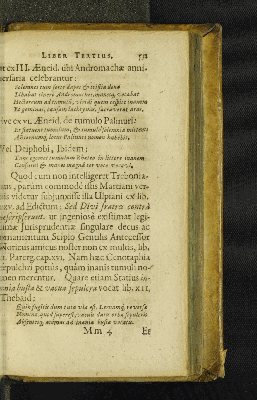 LIBER TERTIUS,
ex III. Æneid. ubi Andromachæ anni-
versaria celebrantur:
Solemnes tum forte dapes & tristia dona
Libabat cineri Andromache, manesq; vocabat
Hectoreum ad tumulum, viridi quem cespite inanem
Et geminas, causam lachrymis, sacraverat aras,
ex VI. Æneid. de tumulo Palinuri:
Et statuent tumulum, & tumulo solennia mittent
Æternumq; locus Palinuri nomen habebit,
Vel Deiphobi, Ibidem:
Tunc egomet tumulum Rhœteo in littore inanem
Constitui & manes magna ter voce vocavi,
Quod cum non intelligeret Trebonia-
nus, parum commodè istis Martiani ver-
bis videtur subjunxisse illa Ulpiani ex lib.
xxv. ad Edictum; Sed Divi fratres contrà
rescripserunt. ut ingeniosè existimat legi-
timæ Jurisprudentiæ singulare decus ac
ornamentum Scipio Gentilis Antecessor
Noricus amicus noster non ex multis, lib.
Parerg. cap. xvi. Nam hæc Cenotaphia
sepulchri potius, quàm inanis tumuli no-
men merentur. Quare etiam Statius
inania busta & vacua sepulcra vocat lib. XII.
Thebaid:
Mm 4 Et